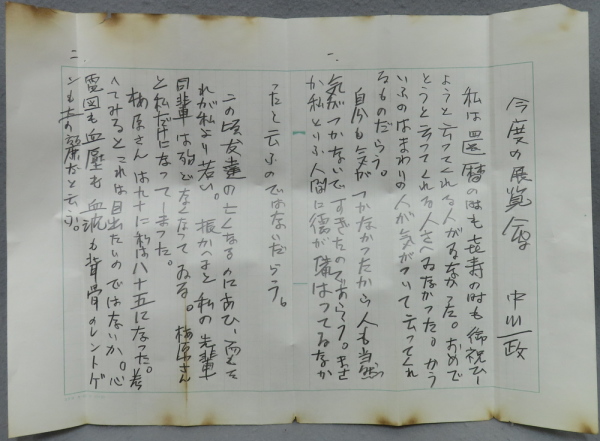 今度の展覧会　中川一政
一、
私は還暦の時も喜寿の時も御祝ひし
ようと言ってくれる人がゐなかった。おめで
とうと言ってくれる人さへゐなかった。かう
いふのはまわりの人が気がついて言ってくれ
るものだらう。
自分も気がつかなかったから人も当然
気がつかないですぎたのであらう。まさ
か私といふ人間に徳が備はってゐなか
ったと云ふのではないだらう。
この頃友達の亡くなるのにあひ、而もそ
れが私より若い。振かへると私の先輩
同輩は殆どなくなってゐる。梅原さん
と私だけになってしまった。
梅原さんは九十に私は八十五になった。考
へてみるとこれは目出たいのではないか。心
電図も血壓も血液も背骨のレントゲ
ンも
だと云ふ。
二、